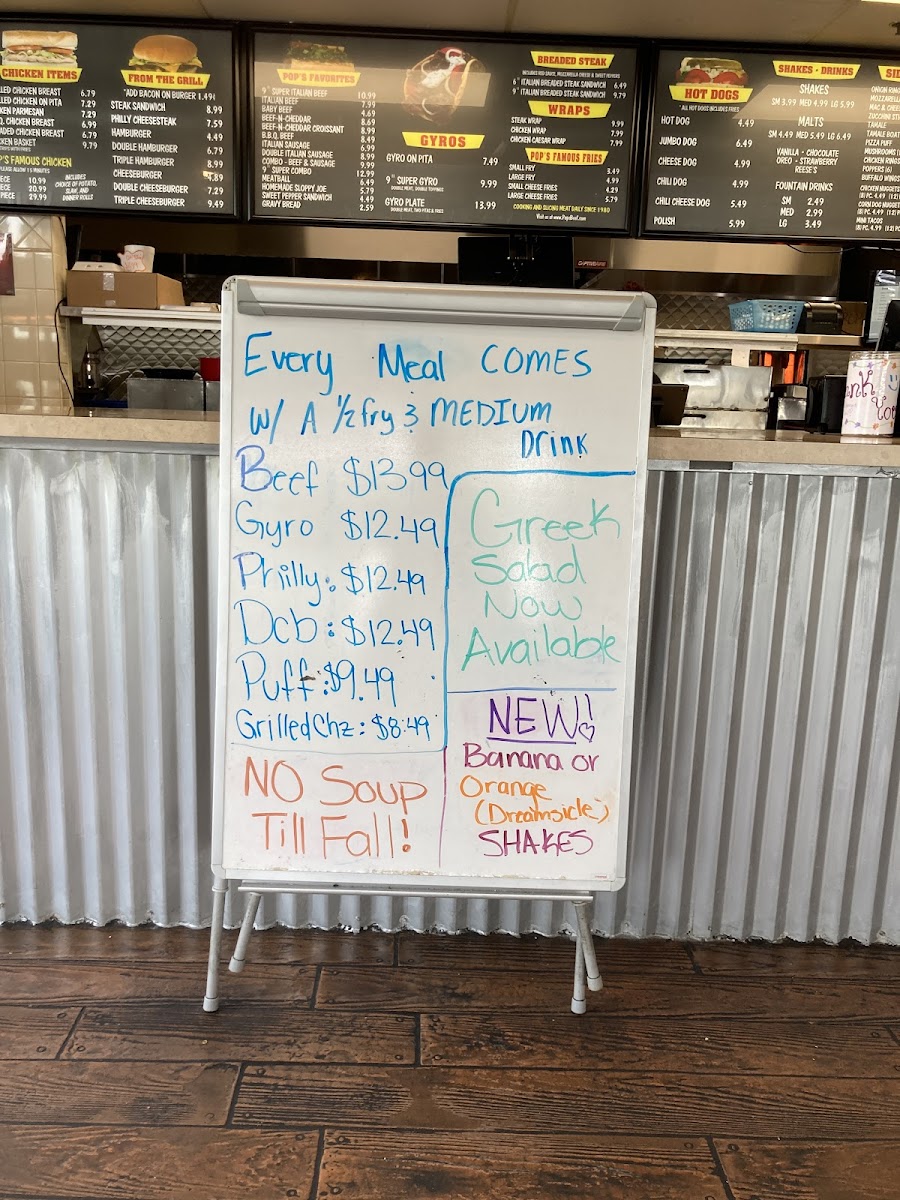 CHICKEN ITEMS
6.79
7.29
7.29
6.99
6.79
9.79
10.99
20.99
29.99
INCLUDES
CHOICE OF POTATO,
SLAW, AND
DINNER ROLLS
FROM THE GRILL
*ADD BACON ON BURGER 1.49¢
STEAK SANDWICH 8.99
PHILLY CHEESESTEAK 7.59
HAMBURGER 4.49
DOUBLE HAMBURGER 6.79
TRIPLE HAMBURGER 8.99
CHEESEBURGER
DOUBLE CHEESEBURGER 7.29
TRIPLE CHEESEBURGER 9.49
POP'S FAVORITES
9" SUPER ITALIAN BEEF 10.99
ITALIAN BEEF 7.99
BABY BEEF 4.69
BEEF-N-CHEDDAR 8.69
BEEF-N-CHEDDAR CROISSANT 8.99
B.B.Q. BEEF 8.49
ITALIAN SAUSAGE 6.99
DOUBLE ITALIAN SAUSAGE 8.99
COMBO - BEEF & SAUSAGE 9.99
9" SUPER COMBO 12.99
MEATBALL 6.49
HOMEMADE SLOPPY JOE 5.49
SWEET PEPPER SANDWICH 4.49
GRAVY BREAD 2.59
GYROS
GYRO ON PITA 7.49
9" SUPER GYRO 9.99
DOUBLE MEAT, DOUBLE TOPPINGS
GYRO PLATE 13.99
DOUBLE MEAT, TWO PITAS & FRIES
BREADED STEAK
INCLUDES RED SAUCE, MOZZARELLA CHEESE & SWEET PEPPERS
6" ITALIAN BREADED STEAK SANDWICH 6.49
9" ITALIAN BREADED STEAK SANDWICH 9.79
WRAPS
STEAK WRAP 9.99
CHICKEN WRAP 7.99
CHICKEN CAESAR WRAP 7.99
POP'S FAMOUS FRIES
SMALL FRY 3.49
LARGE FRY 4.99
SMALL CHEESE FRIES 4.29
LARGE CHEESE FRIES 5.79
COOKING AND SLICING MEAT DAILY SINCE 1980
Visit us at www.PopsBeef.com
HOT DOGS
*ALL HOT DOGS INCLUDES FRIES
HOT DOG 4.49
JUMBO DOG 6.49
CHEESE DOG 4.99
CHILI DOG 4.99
CHILI CHEESE DOG 5.49
POLISH 5.99
SHAKES - DRINKS
SHAKES
SM 3.99 MED 4.99 LG 5.99
MALTS
SM 4.49 MED 5.49 LG 6.49
VANILLA - CHOCOLATE
OREO - STRAWBERRY
REESE'S
FOUNTAIN DRINKS
SM 2.49
MED 2.99
LG 3.49
Every Meal COMES
W/ A 1/2 fry & MEDIUM
Drink
Beef $13.99
Gyro $12.49
Philly: $12.49
Dcb: $12.49
Puff: $9.49
Grilled Chz: $8.49
NO Soup
Till Fall!
Greek
Salad
Now
Available
NEW!
Banana or
Orange
(Dreamsicle)
SHAKES